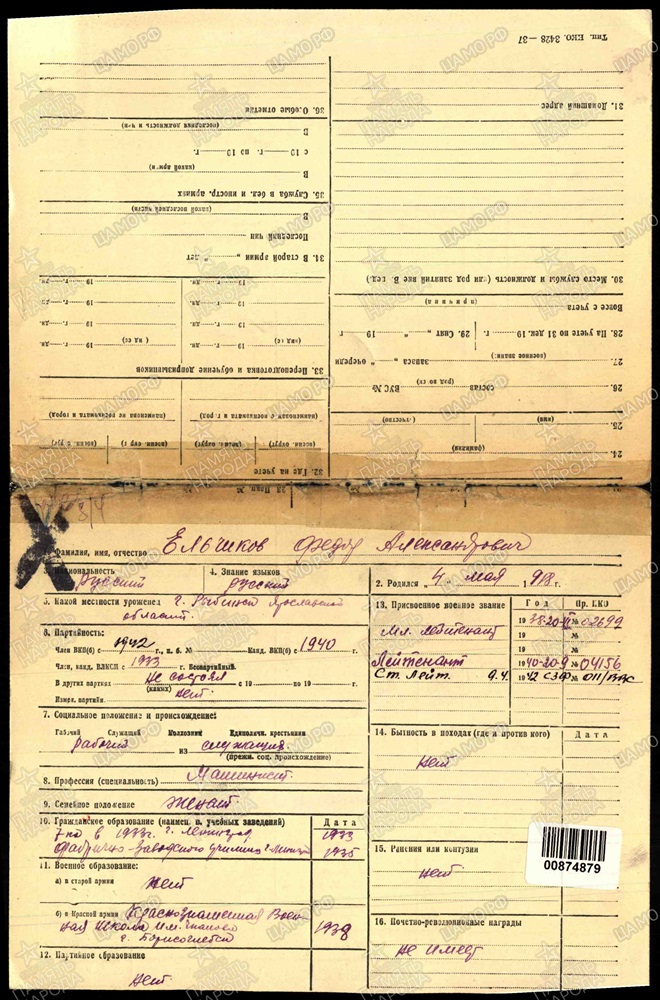 Тип. ЕКО. 3428—37
31. Домашний адрес
30. Место службы и должность или род занятий вне В вед.)
Вовсе с учета
(причина)
28. На учете по 31 дек. 19 г. 29. Снят „ “ 19 г
27. запаса „ “ очереди
(военное звание)
26. состав ВУС №
25.
(имя) (отчество)
24.
(фамилия)
36. Особые отметки
В
(последняя должность и ч-и)
с 19 г. по 19 г.
В
(какой арм-и)
35. Служба в бел. и иностр. армиях
(какой последней части)
В
Последний чин
34. В старой армии „ “ лет
33. Переподготовка и обучение допризывников
32. Где на учете
3/4
Фамилия, имя, отчество Ельчиков Федор Александрович
3. Национальность русский
4. Знание языков русский
2. Родился „4“ мая 1918 г.
5. Какой местности уроженец г. Рыбинск Ярославской
области.
6. Партийность:
Член ВКП(б) с 1942 г., п. б. № Канд. ВКП(б) с 1940 г.
Член, канд. ВЛКСМ с 1933 г. Беспартийный.
В других партиях не состоял с 19 по 19 г.
(каких)
Нет.
7. Социальное положение и происхождение:
Рабочий Служащий Колхозник Единоличн. крестьянин
рабочий из служащих.
(прежн. соц. происхождение)
8. Профессия (специальность) Машинист.
9. Семейное положение женат
10. Гражданское образование (наимен. и. учебных заведений) Дата
7-кл в 1933г. г. Ленинград 1933
Фабрично-Заводского училища 1935
11. Военное образование:
а) в старой армии Нет
б) в Красной армии Краснознаменная Воен-
ная школа им. Чкалова
г. Борисоглебск 1938
12. Партийное образование
Нет.
13. Присвоенное военное звание Год Пр. НКО
Мл. лейтенант 1938-20-XI № 02699
19 №
19 №
Лейтенант 1940-20-9 № 04156
Ст. Лейт. 9.4. 1942 СЗФ № 011/ВВС
14. Бытность в походах (где и против кого) Дата
Нет
15. Ранения или контузии
Нет
00874879
16. Почетно-революционные награды
Не имеет